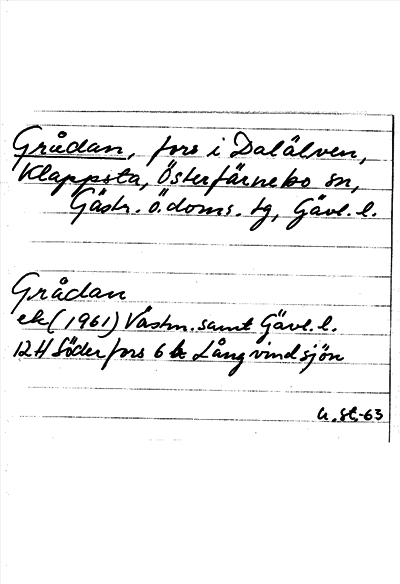 Grådan, fors i Dalälven,
Klappsta, Österfärnebo sn,
Gästr. ö. doms. tg, Gävl. l.
Grådan
ek (1961) Västm. samt Gävl. l.
12H Söderfors 6 b Långvindsjön
G. St. -63